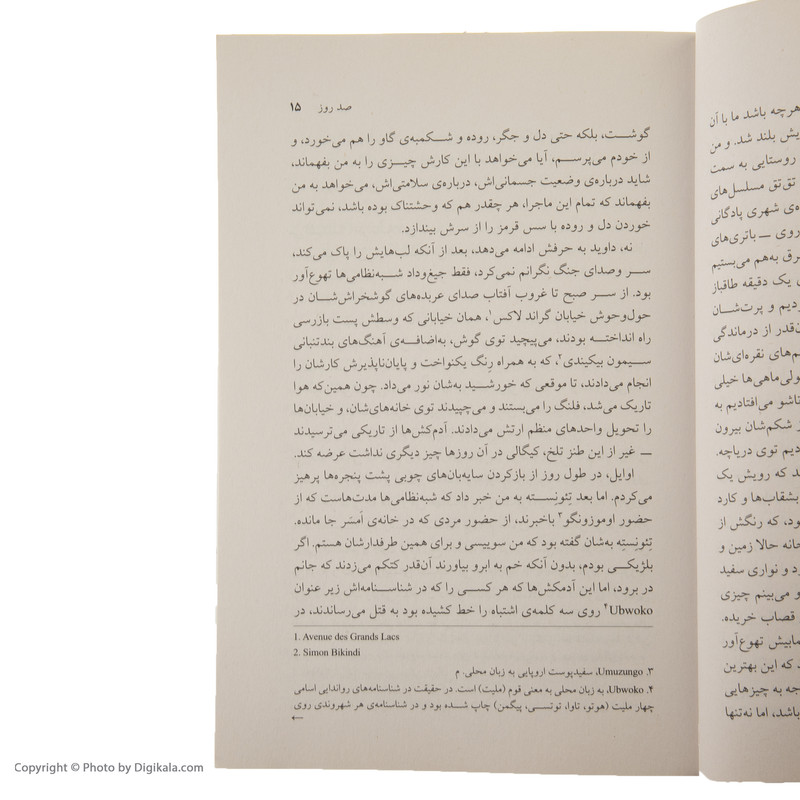 صد روز ۱۵
گوشت، بلکه حتی دل و جگر، روده و شکمبه‌ی گاو را هم می‌خورد، و
از خودم می‌پرسم، آیا می‌خواهد با این کارش چیزی را به من بفهماند،
شاید درباره‌ی وضعیت جسمانی‌اش، درباره‌ی سلامتی‌اش، می‌خواهد به من
بفهماند که تمام این ماجرا، هر چقدر هم که وحشتناک بوده باشد، نمی‌تواند
خوردن دل و روده با سس قرمز را از سرش بیندازد.
نه، داوید به حرفش ادامه می‌دهد، بعد از آنکه لب‌هایش را پاک می‌کند،
سر وصدای جنگ نگرانم نمی‌کرد، فقط جیغ‌وداد شبه‌نظامی‌ها تهوع‌آور
بود. از سر صبح تا غروب آفتاب صدای عربده‌های گوشخراش‌شان در
حول‌وحوش خیابان گراند لاکس۱، همان خیابانی که وسطش پست بازرسی
راه انداخته بودند، می‌پیچید توی گوش، به‌اضافه‌ی آهنگ‌های بندتنبانی
سیمون بیکیندی۲، که به همراه رنگ یکنواخت و پایان‌ناپذیرش کارشان را
انجام می‌دادند، تا موقعی که خورشید به‌شان نور می‌داد. چون همین‌که هوا
تاریک می‌شد، فلنگ را می‌بستند و می‌چپیدند توی خانه‌های‌شان، و خیابان‌ها
را تحویل واحدهای منظم ارتش می‌دادند. آدم‌کش‌ها از تاریکی می‌ترسیدند
— غیر از این طنز تلخ، کیگالی در آن روزها چیز دیگری نداشت عرضه کند.
اوایل، در طول روز از بازکردن سایه‌بان‌های چوبی پشت پنجره‌ها پرهیز
می‌کردم. اما بعد تِئونِسته به من خبر داد که شبه‌نظامی‌ها مدت‌هاست که از
حضور اوموزونگو۳ باخبرند، از حضور مردی که در خانه‌ی اَمسَر جا مانده.
تِئونِسته به‌شان گفته بود که من سوییسی و برای همین طرفدارشان هستم. اگر
بلژیکی بودم، بدون آنکه خم به ابرو بیاورند آن‌قدر کتکم می‌زدند که جانم
در برود، اما این آدمکش‌ها که هر کسی را که در شناسنامه‌اش زیر عنوان
Ubwoko۴ روی سه کلمه‌ی اشتباه را خط کشیده بود به قتل می‌رساندند، در
1. Avenue des Grands Lacs
2. Simon Bikindi
۳. Umuzungo، سفیدپوست اروپایی به زبان محلی. م
۴. Ubwoko، به زبان محلی به معنی قوم (ملیت) است. در حقیقت در شناسنامه‌های رواندایی اسامی
چهار ملیت (هوتو، تاوا، توتسی، پیگمن) چاپ شده بود و در شناسنامه‌ی هر شهروندی روی
←
هرچه باشد ما با آن
یش بلند شد. و من
روستایی به سمت
تق‌تق مسلسل‌های
ه‌ی شهری پادگانی
روی — باتری‌های
رق به‌هم می‌بستیم
ی یک دقیقه طاقباز
ردیم و پرت‌شان
ن‌قدر از درماندگی
م‌های نقره‌ای‌شان
ولی‌ماهی‌ها خیلی
تاشو می‌افتادیم به
ز شکم‌شان بیرون
دیم توی دریاچه.
ند که رویش یک
بشقاب‌ها و کارد
ود، که رنگش از
خانه حالا زمین و
رد و نواری سفید
و می‌بینم چیزی
قصاب خریده.
مایش تهوع‌آور
د که این بهترین
جه به چیزهایی
باشد، اما نه‌تنها
Copyright © Photo by Digikala.com